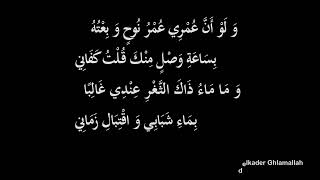 وَ لَوْ أَنَّ عُمْرِي عُمْرُ نُوحٍ وَ بِعْتُهُ
بِسَاعَةِ وَصْلٍ مِنْكَ قُلْتُ كَفَانِي
وَ مَا مَاءُ ذَاكَ الثَّغْرِ عِنْدِي غَالِيًا
بِمَاءِ شَبَابِي وَ اقْتِبَالِ زَمَانِي
lkader Ghlamallah
d